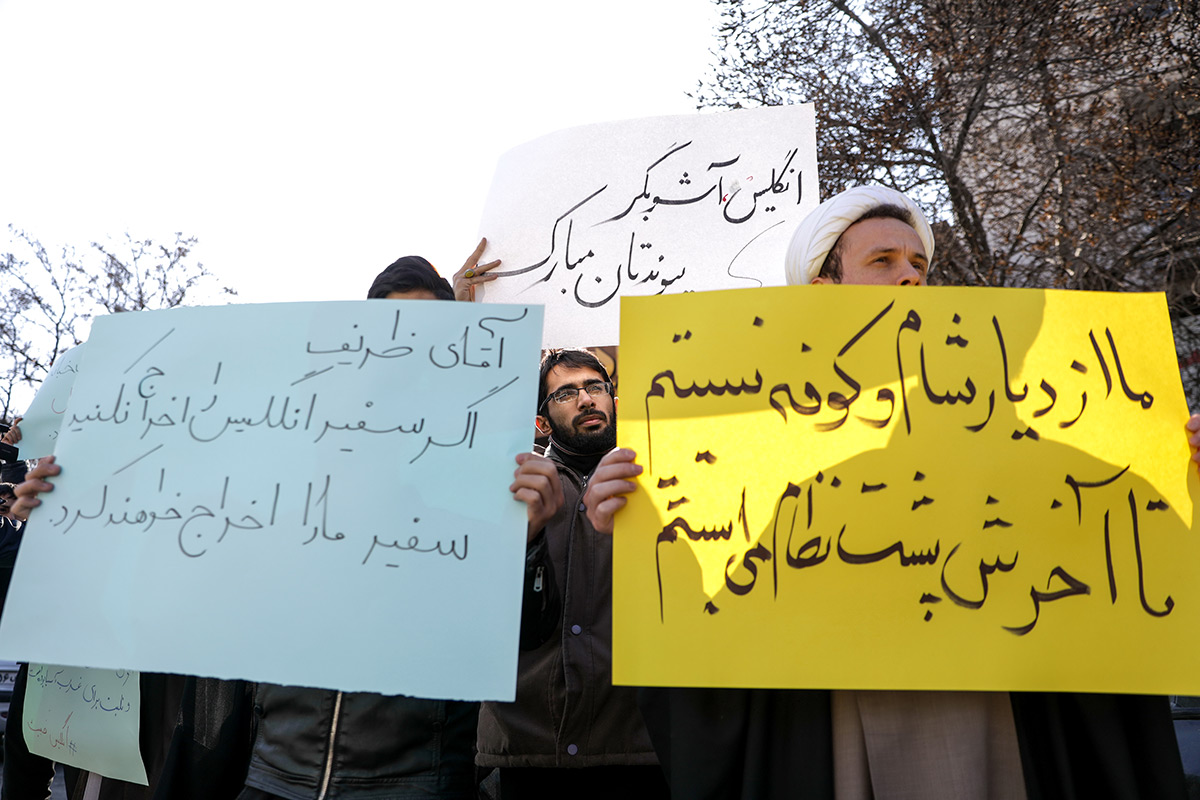 انگلیس، آشوبگر
پیوندتان مبارک
آقای ظریف
اگر سفیر انگلیس را اخراج نکنید
سفیر ما را اخراج خواهند کرد.
ما از دیار شام و کوفه نیستیم
تا آخرش پشت نظام می ایستیم
#انگلیس خبیث